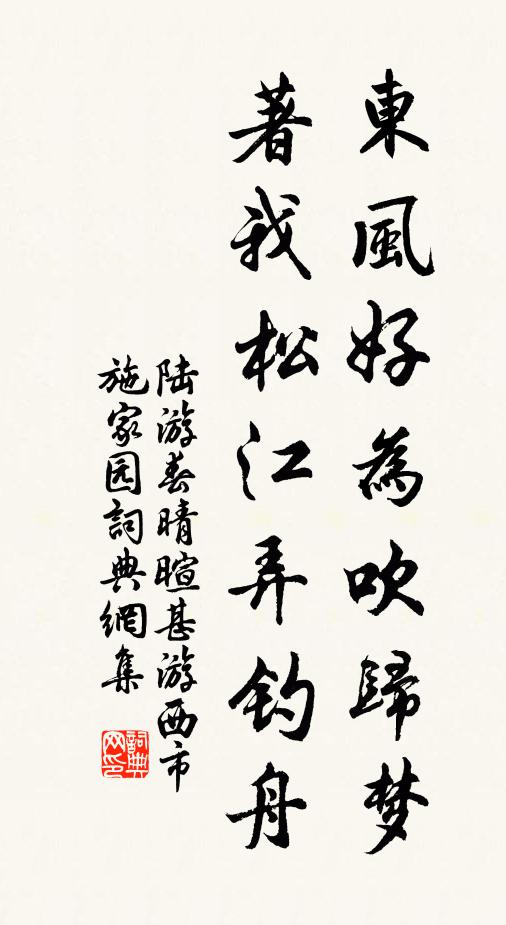 東風好為吹歸梦
著我松江弄钓舟
陆游春晴暄甚游西市
施家园詞典網集
詞典网印